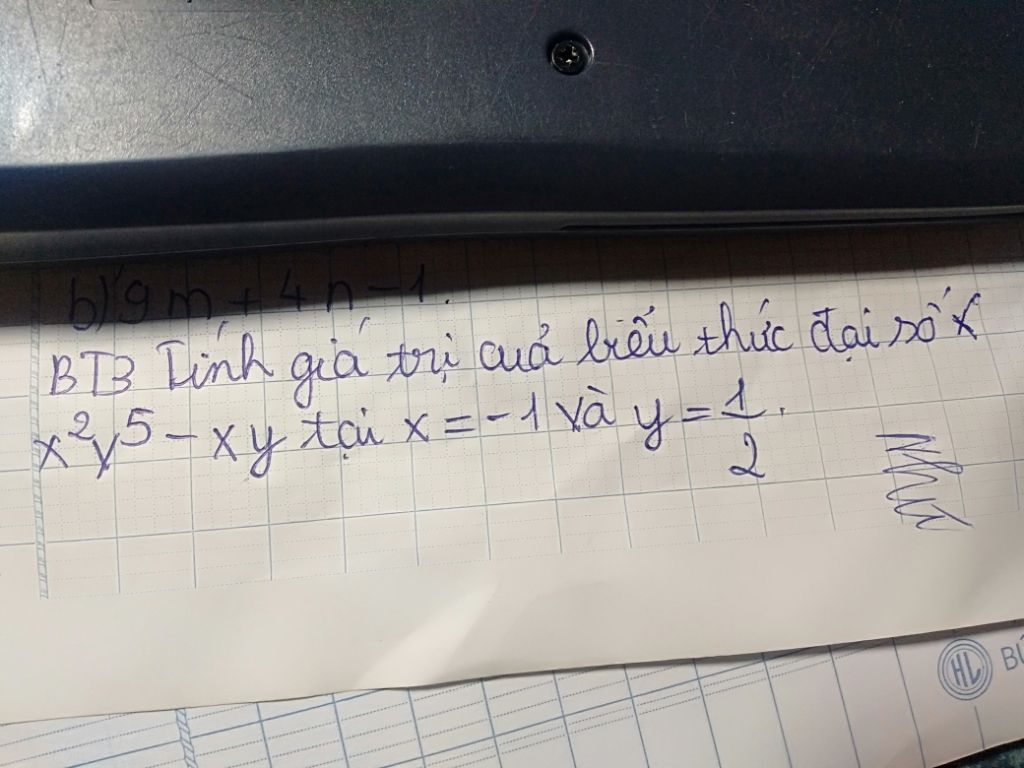 b) 9m + 4n - 1.
BT3 Tính giá trị cuả biểu thức đại số
x²y⁵ - xy tại x = -1 và y = 1/2.
HL BÚ